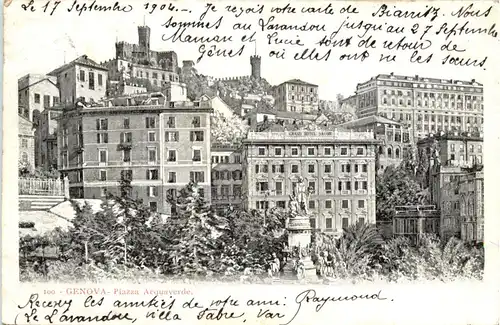 Le 17 Septembre 1904. Je reçois votre carte de Biarritz. Nous
sommes au Lavandou jusqu'au 27 Septembre
Maman et Lucie sont de retour de
Gênes où elles ont vu nos sœurs.
100 - GENOVA - Piazza Acquaverde.
Recevez les amitiés de votre ami: Raymond
(Le Lavandou, villa Fabre, Var)